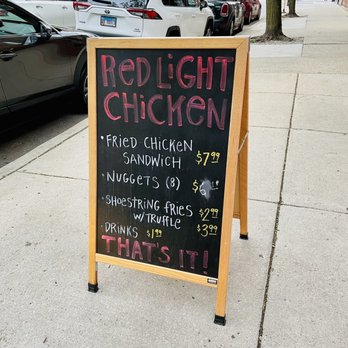 RED LIGHT
CHICKEN
• FRIED CHICKEN
SANDWICH $7.99
• NUGGETS (8) $6
• SHOESTRING FRIES $2.99
W/ TRUFFLE $3.99
• DRINKS $1.99
THAT'S IT!